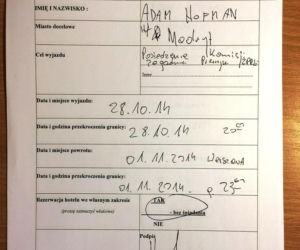 IMIĘ I NAZWISKO : ADAM HOFMAN
Miasto docelowe Madryt
Cel wyjazdu Posiedzenie Komisji
Zagadnień
Inne
Data i miejsce wyjazdu: 28.10.14
Data i godzina przekroczenia granicy: 28.10.14 20
Data i miejsce powrotu: 01.11.2014 Warszawa
Data i godzina przekroczenia granicy: 01.11.2014. g. 23
Rezerwacja hotelu we własnym zakresie TAK
(proszę zaznaczyć właściwe) - bez śniadania
NIE
Podpis